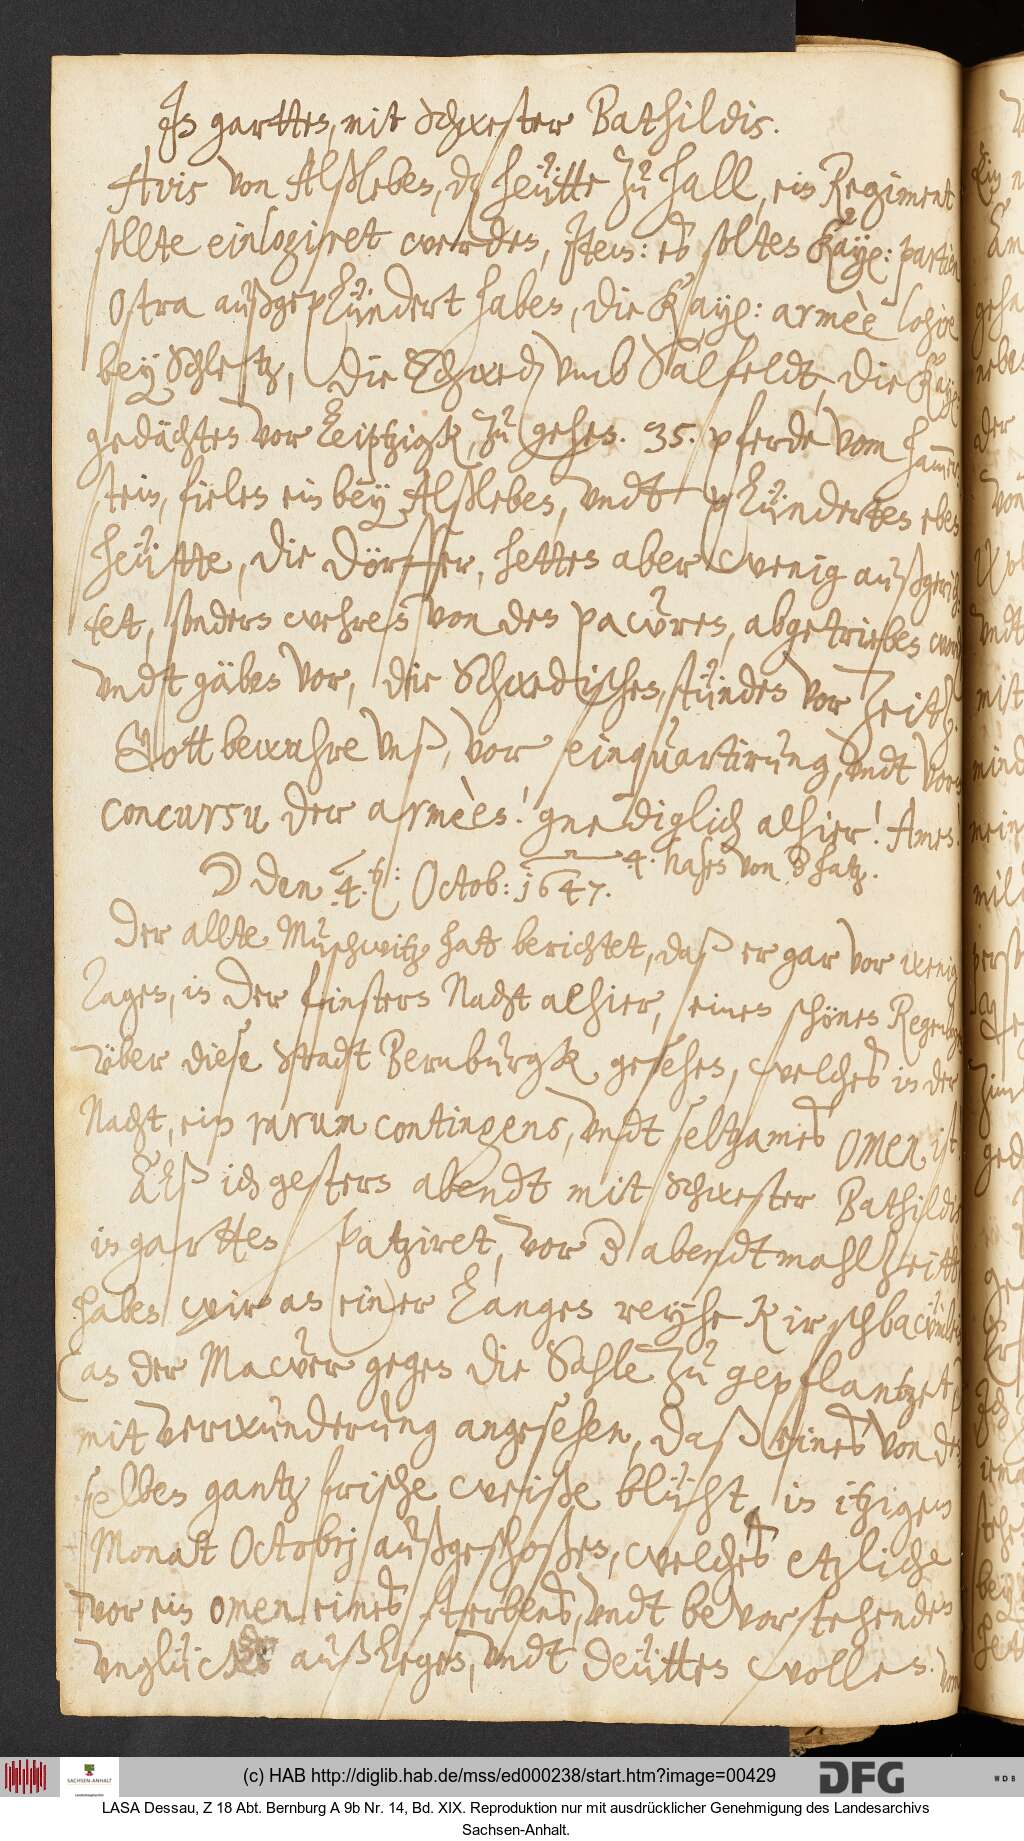 In garten, mit Schwester Bathildis.
Avis von Alßleben, daß heütte zu hall, ein Regiment
sollte einlogiret werden, Item: es solten Kayß: partien
Ostra außgeplündert haben, die Kayß: armèe logire
bey Schleitz, die Schwed umb Salfeldt, die Kayß:
gedächten vor Leiptzigk, zu gehen. 35. pferde vom hammer
stein, fielen ein bey Alßleben, undt plünderten eben
heütte, die dörffer, hetten aber wenig außgerich
tet, sondern wehren von den pawren, abgetrieben word
undt gäben vor, die Schwedischen, stünden vor Zeitz.
Gott bewahre unß, vor einquartirung, undt vorm
concursu der armèen! gnediglich alhier! Amen.
☽ den 4. Octob: 1647. 4. hasen von der hatz.
Der allte Muschwitz hat berichtet, daß er gar vor wenig
Tagen, in der finstern Nacht alhier, einen schönen Regenbogen
über diese Stadt Bernburgk gesehen, welches in der
Nacht, ein rarum contingens, undt seltzames omen ist.
Alß ich gestern abendt mit Schwester Bathildis
in garten spatziret, vor der abendtmahlzeitt
haben wir an einer langen reyhe Kirschbawme
(an der Mawer gegen die Sahle zu gepflantzet)
mit verwunderung angesehen, daß eines von den
selben gantz frische weiße blüht, in itzigem
Monat Octobrj außgeschoßen, welches etzliche
vor ein omen eines sterbens, undt bevorstehenden
unglücks außlegen, undt deütten wollen. vom
(c) HAB http://diglib.hab.de/mss/ed000238/start.htm?image=00429
SACHSEN-ANHALT
DFG
WDB
LASA Dessau, Z 18 Abt. Bernburg A 9b Nr. 14, Bd. XIX. Reproduktion nur mit ausdrücklicher Genehmigung des Landesarchivs
Sachsen-Anhalt.